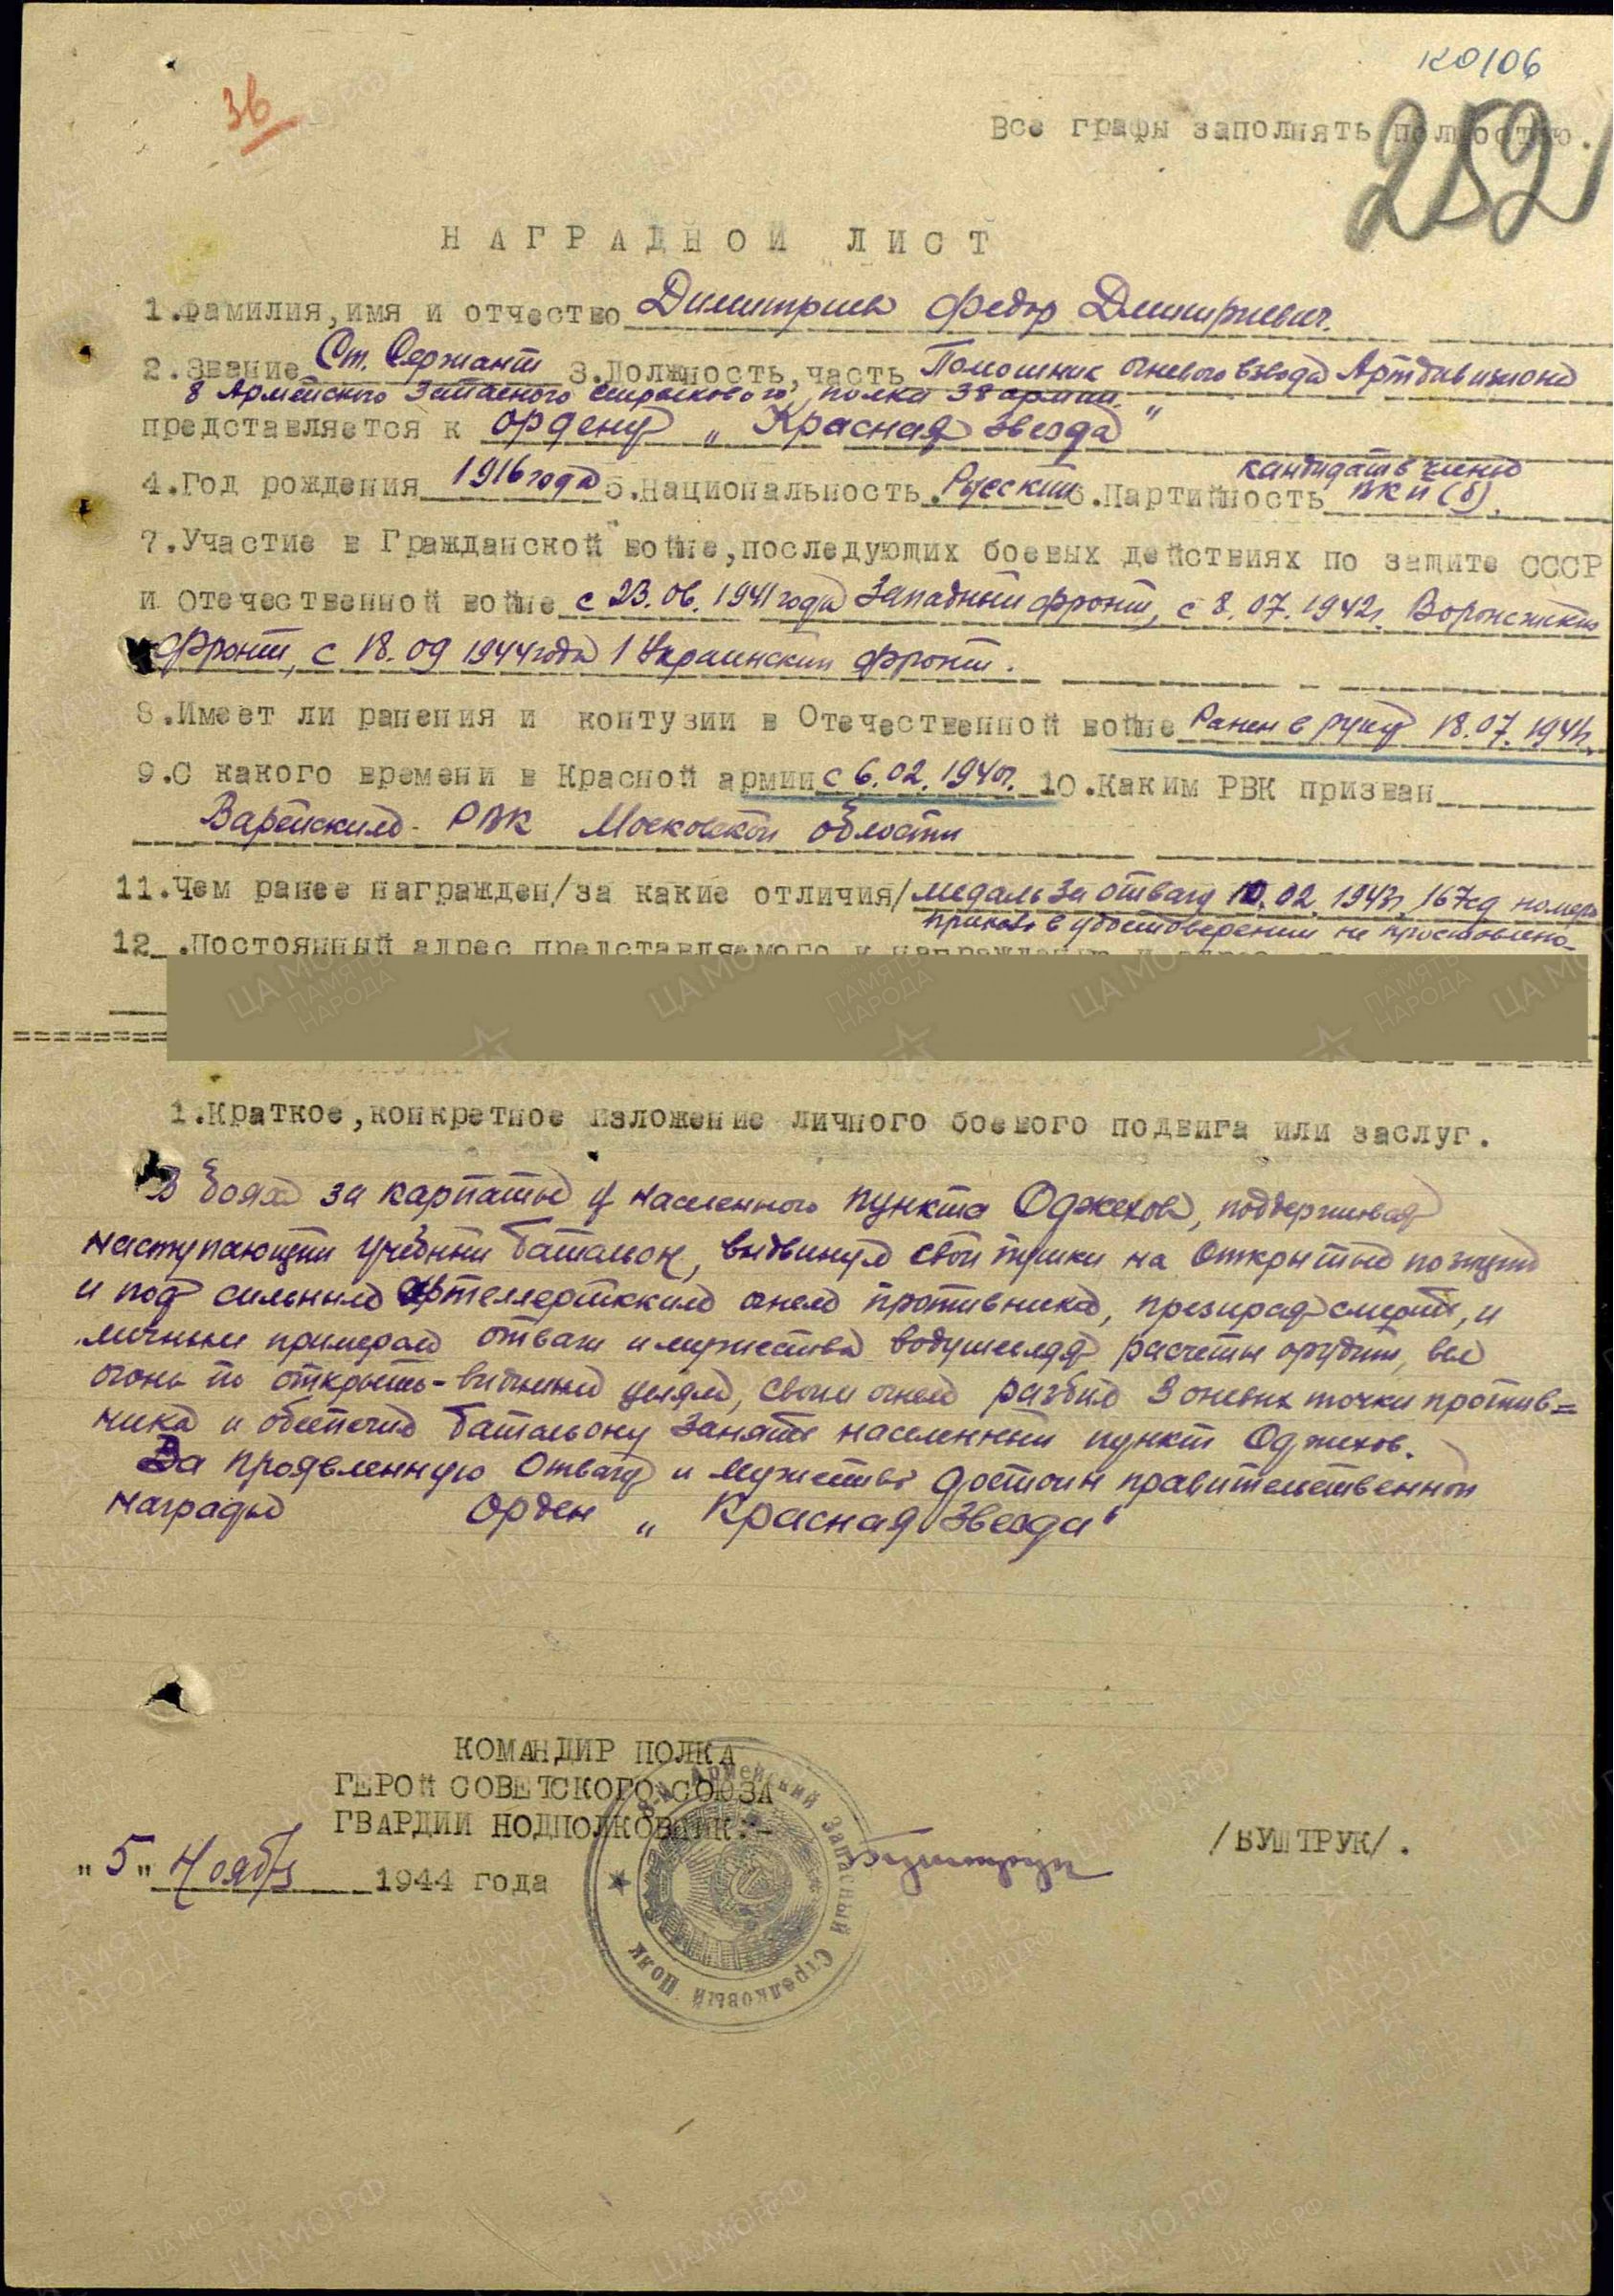 КО/06
36
252
Все графы заполнять полностью.
НАГРАДНОЙ ЛИСТ
1.Фамилия,имя и отчество Димитриев Федор Дмитриевич.
2.Звание Ст. Сержант 3.Должность,часть Помошник огневого взвода Артдивизиона
8 Армейского Запасного стрелкового полка 38 армии.
представляется к ордену „Красная Звезда"
4.Год рождения 1916 года 5.Национальность Русский 6.Партийность кандидат в члены ВКП(б).
7.Участие в Гражданской войне,последующих боевых действиях по защите СССР
и Отечественной войне с 23.06.1941 года Западный фронт, с 8.07.1942г. Воронежский
фронт, с 18.09 1944 года 1 Украинский фронт.
8.Имеет ли ранения и контузии в Отечественной войне Ранен в руку 18.07.1941г.
9.С какого времени в Красной армии с 6.02.1940г. 10.Каким РВК призван
РВК Московской области
11.Чем ранее награжден/за какие отличия/ медаль За отвагу 10.02.1943г. номер
приказа в удостоверении не проставлено
12.Постоянный адрес представляемого к награждению и адрес
1.Краткое,конкретное изложение личного боевого подвига или заслуг.
В боях за карпаты у населенного пункта Оджехов, поддерживая
наступающий учебный батальон, выдвинул свои пушки на открытые позиции
и под сильным огнем противника, презирая смерть, и
личным примером отваги и мужества водушевляя расчеты орудий, вел
огонь по открыто-видимым целям, своим огнем разбил 3 огневых точки против=
ника и обеспечил батальону занять населенный пункт Оджехов.
За проявленную отвагу и мужество достоин правительственной
награды Орден „Красная Звезда"
КОМАНДИР ПОЛКА
ГЕРОЙ СОВЕТСКОГО СОЮЗА
ГВАРДИИ ПОДПОЛКОВНИК:- /БУШТРУК/.
"5" Ноября 1944 года
8-й Армейский Запасный Стрелковый Полк
ЦАМО.РФ
ПАМЯТЬ НАРОДА